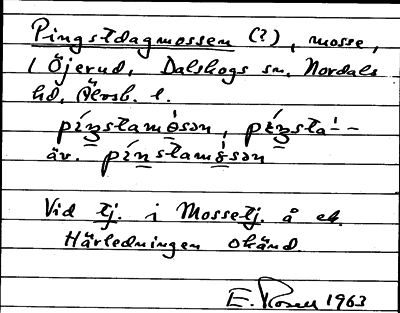 Pingstdagmossen (?), mosse,
i Öjerud, Dalskogs sn, Nordals
hd, Älvsb. l.
píŋstamòsən, péŋsta/- -
äv. pínstamòsən
Vid tj. i Mossetj. å ek.
Härledningen okänd
E. Rosell 1963